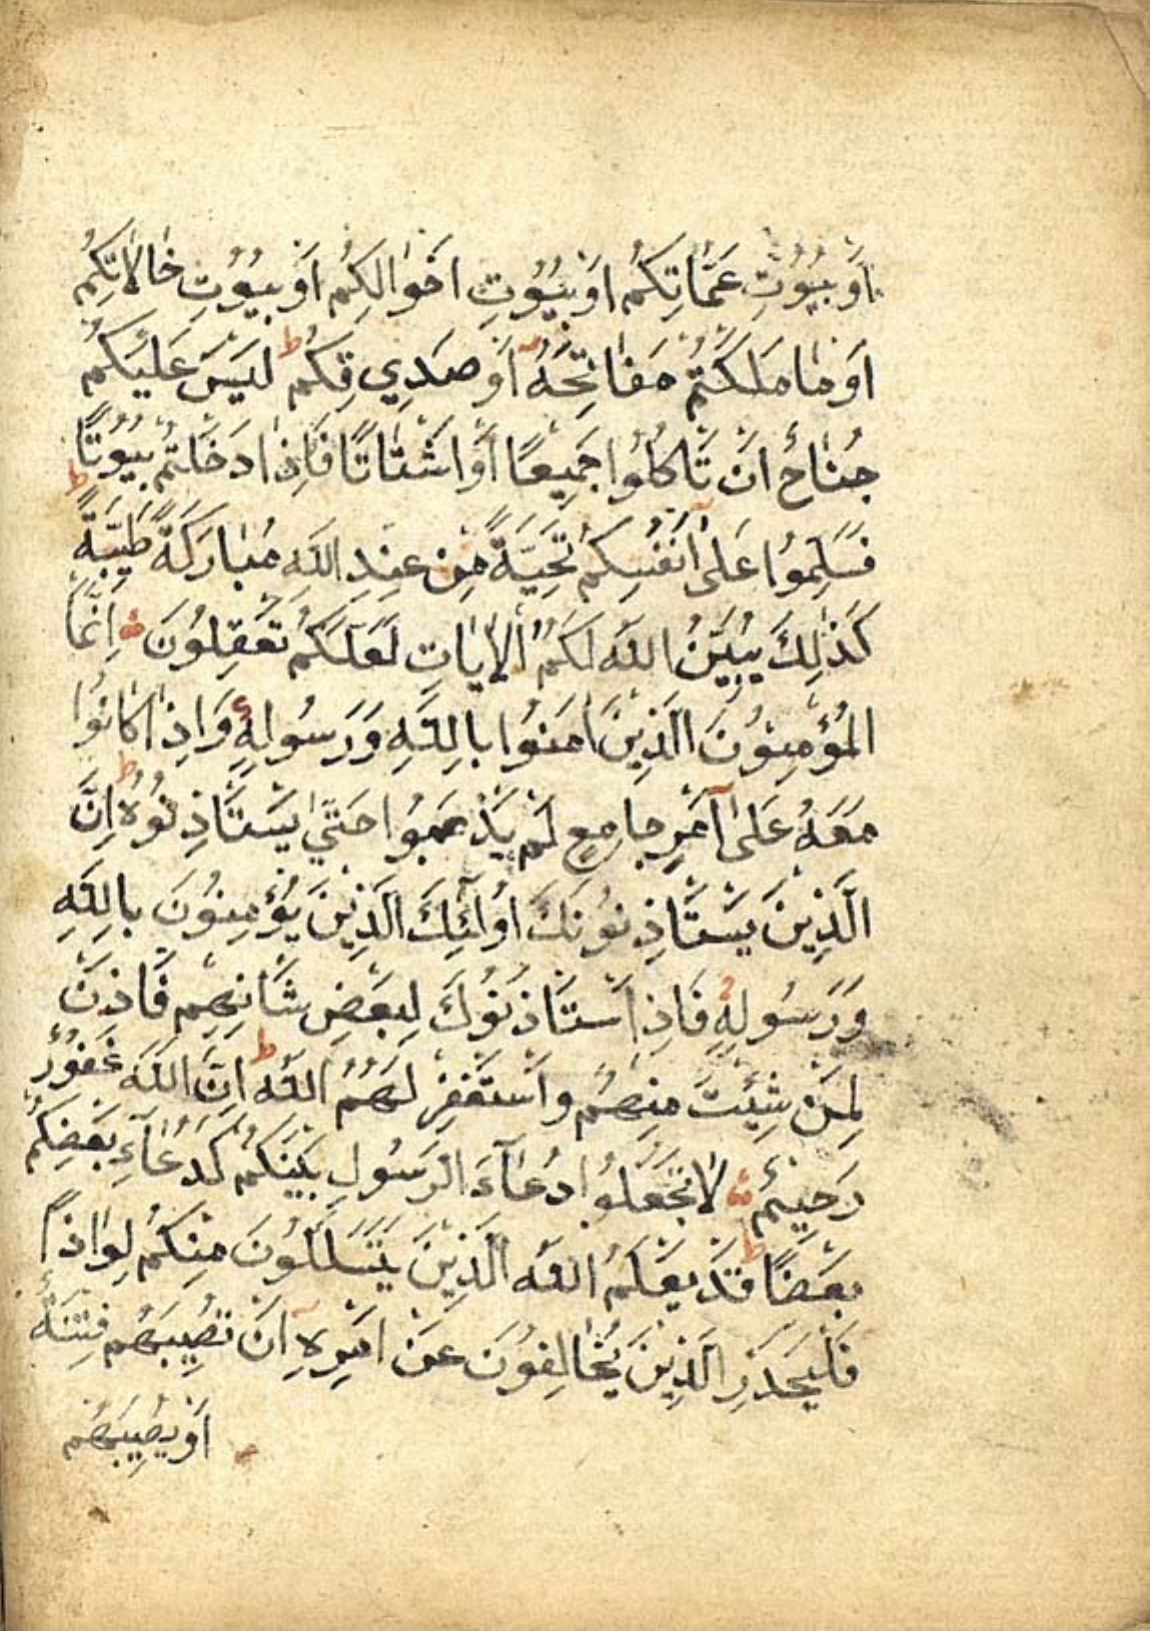 اَوْ بُيُوتِ عَمَّاتِكُمْ اَوْ بُيُوتِ اَخْوَالِكُمْ اَوْ بُيُوتِ خَالَاتِكُمْ
اَوْ مَا مَلَكْتُمْ مَفَاتِحَهُ اَوْ صَدِيقِكُمْ ط لَيْسَ عَلَيْكُمْ
جُنَاحٌ اَنْ تَاْكُلُوا جَمِيعًا اَوْ اَشْتَاتًا فَاِذَا دَخَلْتُمْ بُيُوتًا
فَسَلِّمُوا عَلٰى اَنْفُسِكُمْ تَحِيَّةً مِنْ عِنْدِ اللّٰهِ مُبَارَكَةً طَيِّبَةً ط
كَذٰلِكَ يُبَيِّنُ اللّٰهُ لَكُمُ الْاٰيَاتِ لَعَلَّكُمْ تَعْقِلُونَ اِنَّمَا
الْمُؤْمِنُونَ الَّذِينَ اٰمَنُوا بِاللّٰهِ وَرَسُولِهِ وَاِذَا كَانُوا
مَعَهُ عَلٰى اَمْرٍ جَامِعٍ لَمْ يَذْهَبُوا حَتّٰى يَسْتَاْذِنُوهُ ط اِنَّ
الَّذِينَ يَسْتَاْذِنُونَكَ اُولٰئِكَ الَّذِينَ يُؤْمِنُونَ بِاللّٰهِ
وَرَسُولِهِ فَاِذَا اسْتَاْذَنُوكَ لِبَعْضِ شَاْنِهِمْ فَاْذَنْ
لِمَنْ شِئْتَ مِنْهُمْ وَاسْتَغْفِرْ لَهُمُ اللّٰهَ ط اِنَّ اللّٰهَ غَفُورٌ
رَحِيمٌ لَا تَجْعَلُوا دُعَآءَ الرَّسُولِ بَيْنَكُمْ كَدُعَآءِ بَعْضِكُمْ
بَعْضًا ط قَدْ يَعْلَمُ اللّٰهُ الَّذِينَ يَتَسَلَّلُونَ مِنْكُمْ لِوَاذًا
فَلْيَحْذَرِ الَّذِينَ يُخَالِفُونَ عَنْ اَمْرِهِ اَنْ تُصِيبَهُمْ فِتْنَةٌ
اَوْ يُصِيبَهُمْ